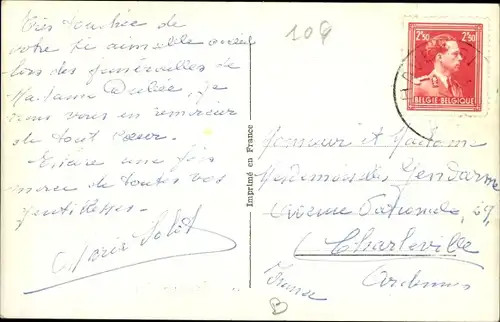 Très touchée de
votre si aimable accueil
lors des funérailles de
Madame Dubée, je
tiens vous en remercier
de tout cœur.
Encore une fois
merci de toutes vos
gentillesses.
Maria
Imprimé en France
109
2F50 2F50
BELGIE-BELGIQUE
Monsieur et Madame
Mesdemoiselles Gendarme
Avenue Nationale, 27,
Charleville
Ardennes
France
B